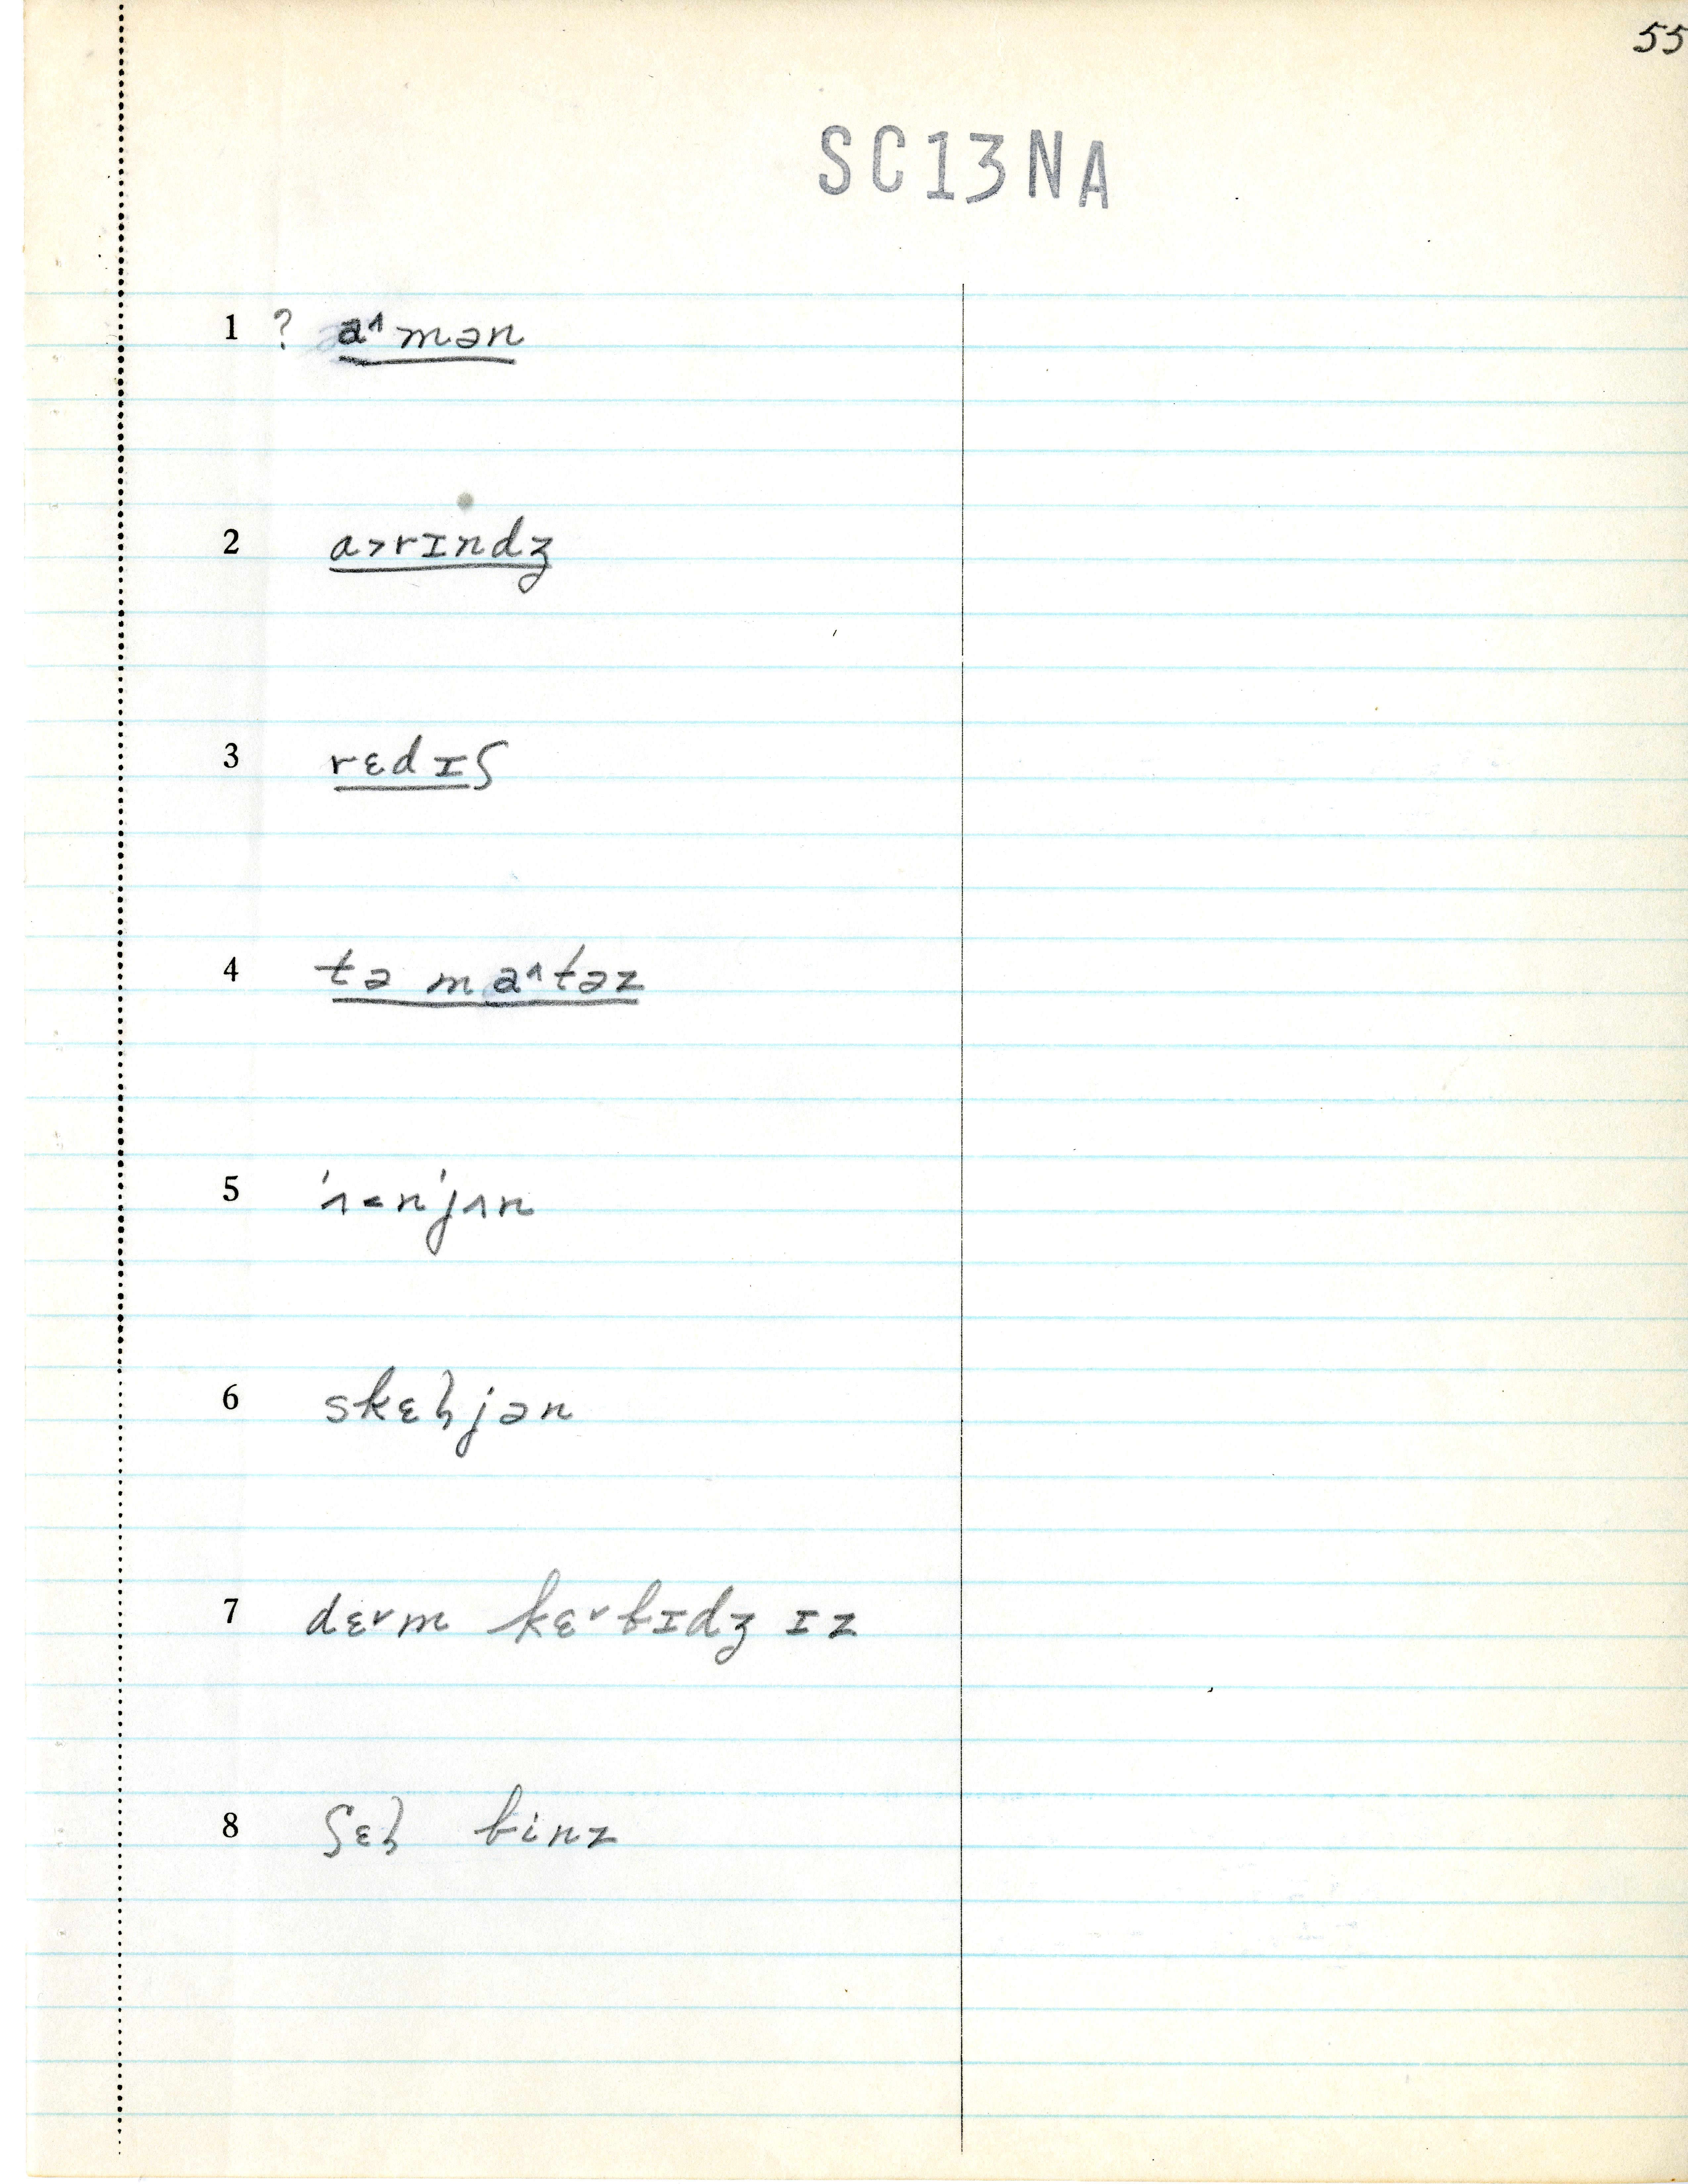 55
SC13NA
1 ? a˄mən
2 a˃rɪndʒ
3 rɛdɪʃ
4 tə ma˄təz
5 'ʌ˂n'jʌn
6 skɛɫjən
7 dɛ˅rm kɛ˅bɪdʒ ɪz
8 ʃɛɫ binz